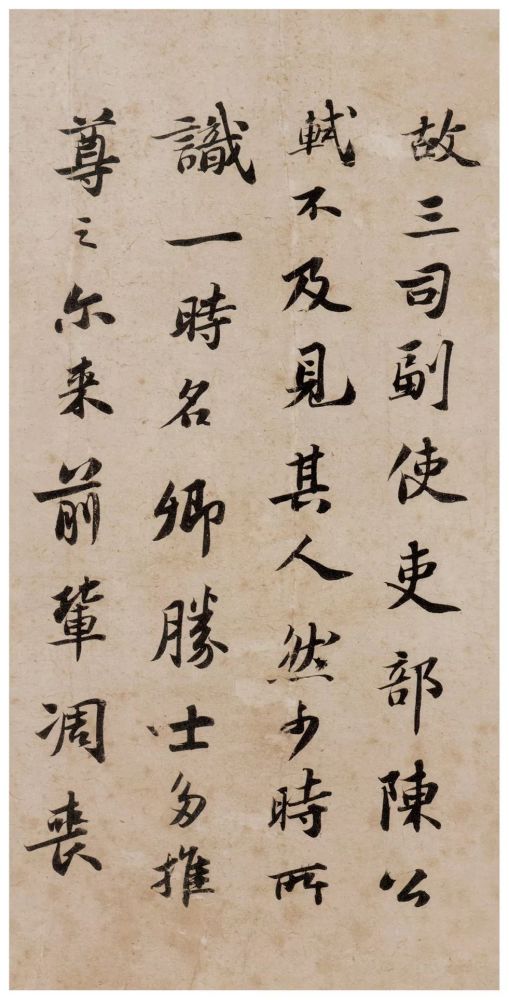 故三司副使吏部陳公
軾不及見其人然少時所
識一時名卿勝士多推
尊之尓来前輩凋喪